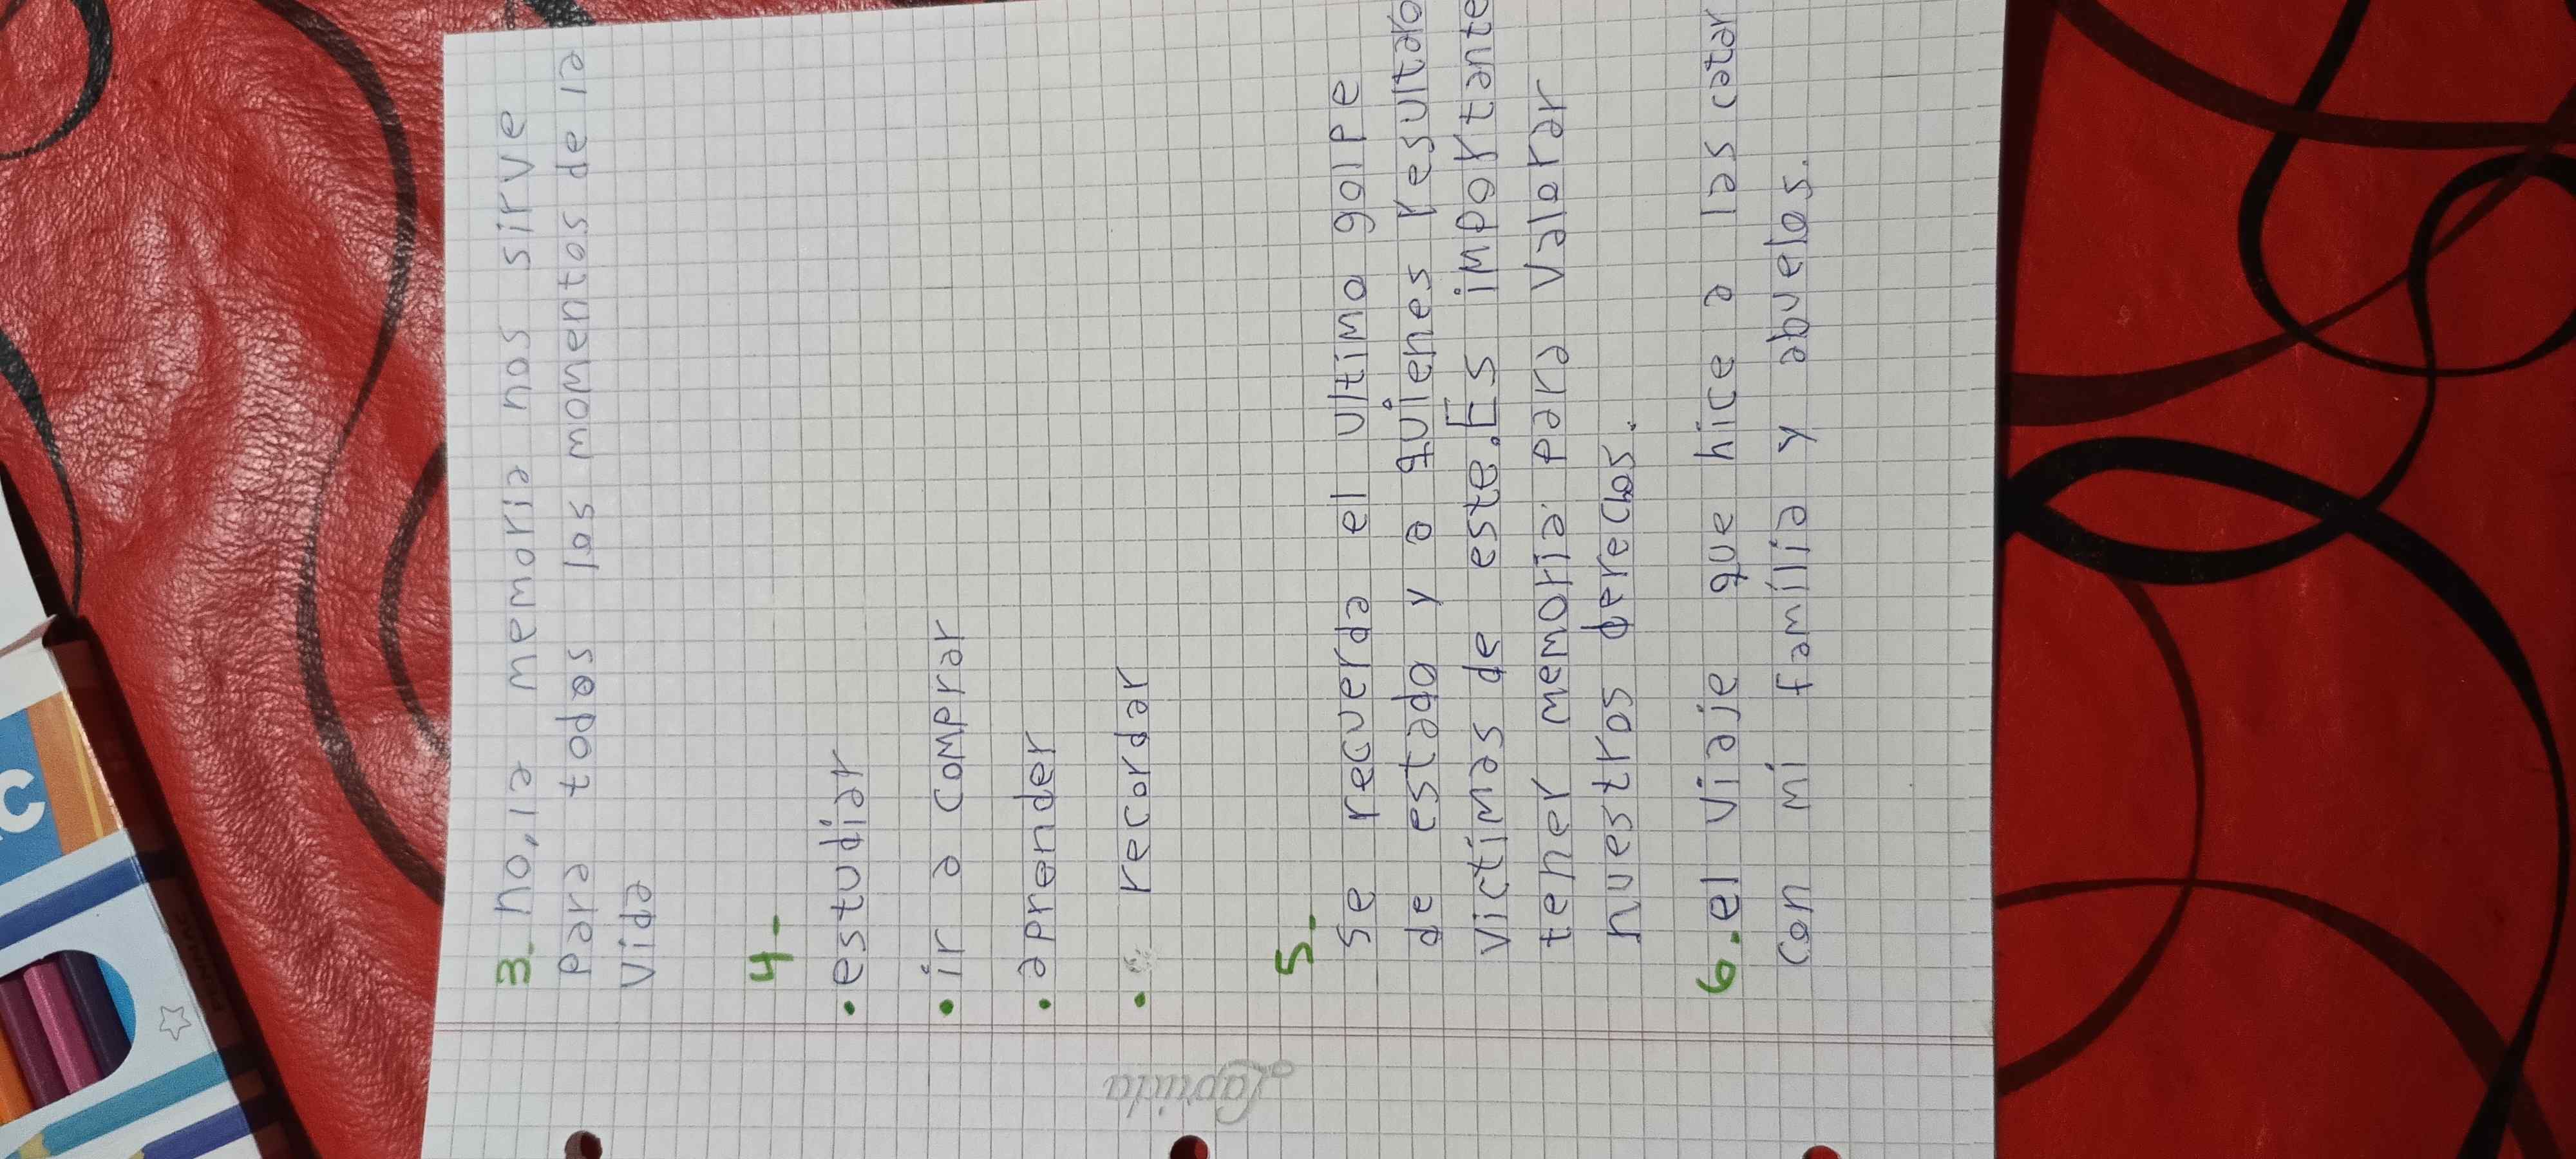 3_ no, la memoria nos sirve
para todos los momentos de la
vida
4-
• estudiar
• ir a comprar
• aprender
• recordar
5_
se recuerda el ultimo golpe
de estado y a quienes resultaro
victimas de este. Es importante
tener memoria para valorar
nuestros derechos.
6. el viaje que hice a las catar
con mi familia y abuelos.
Laprida
C